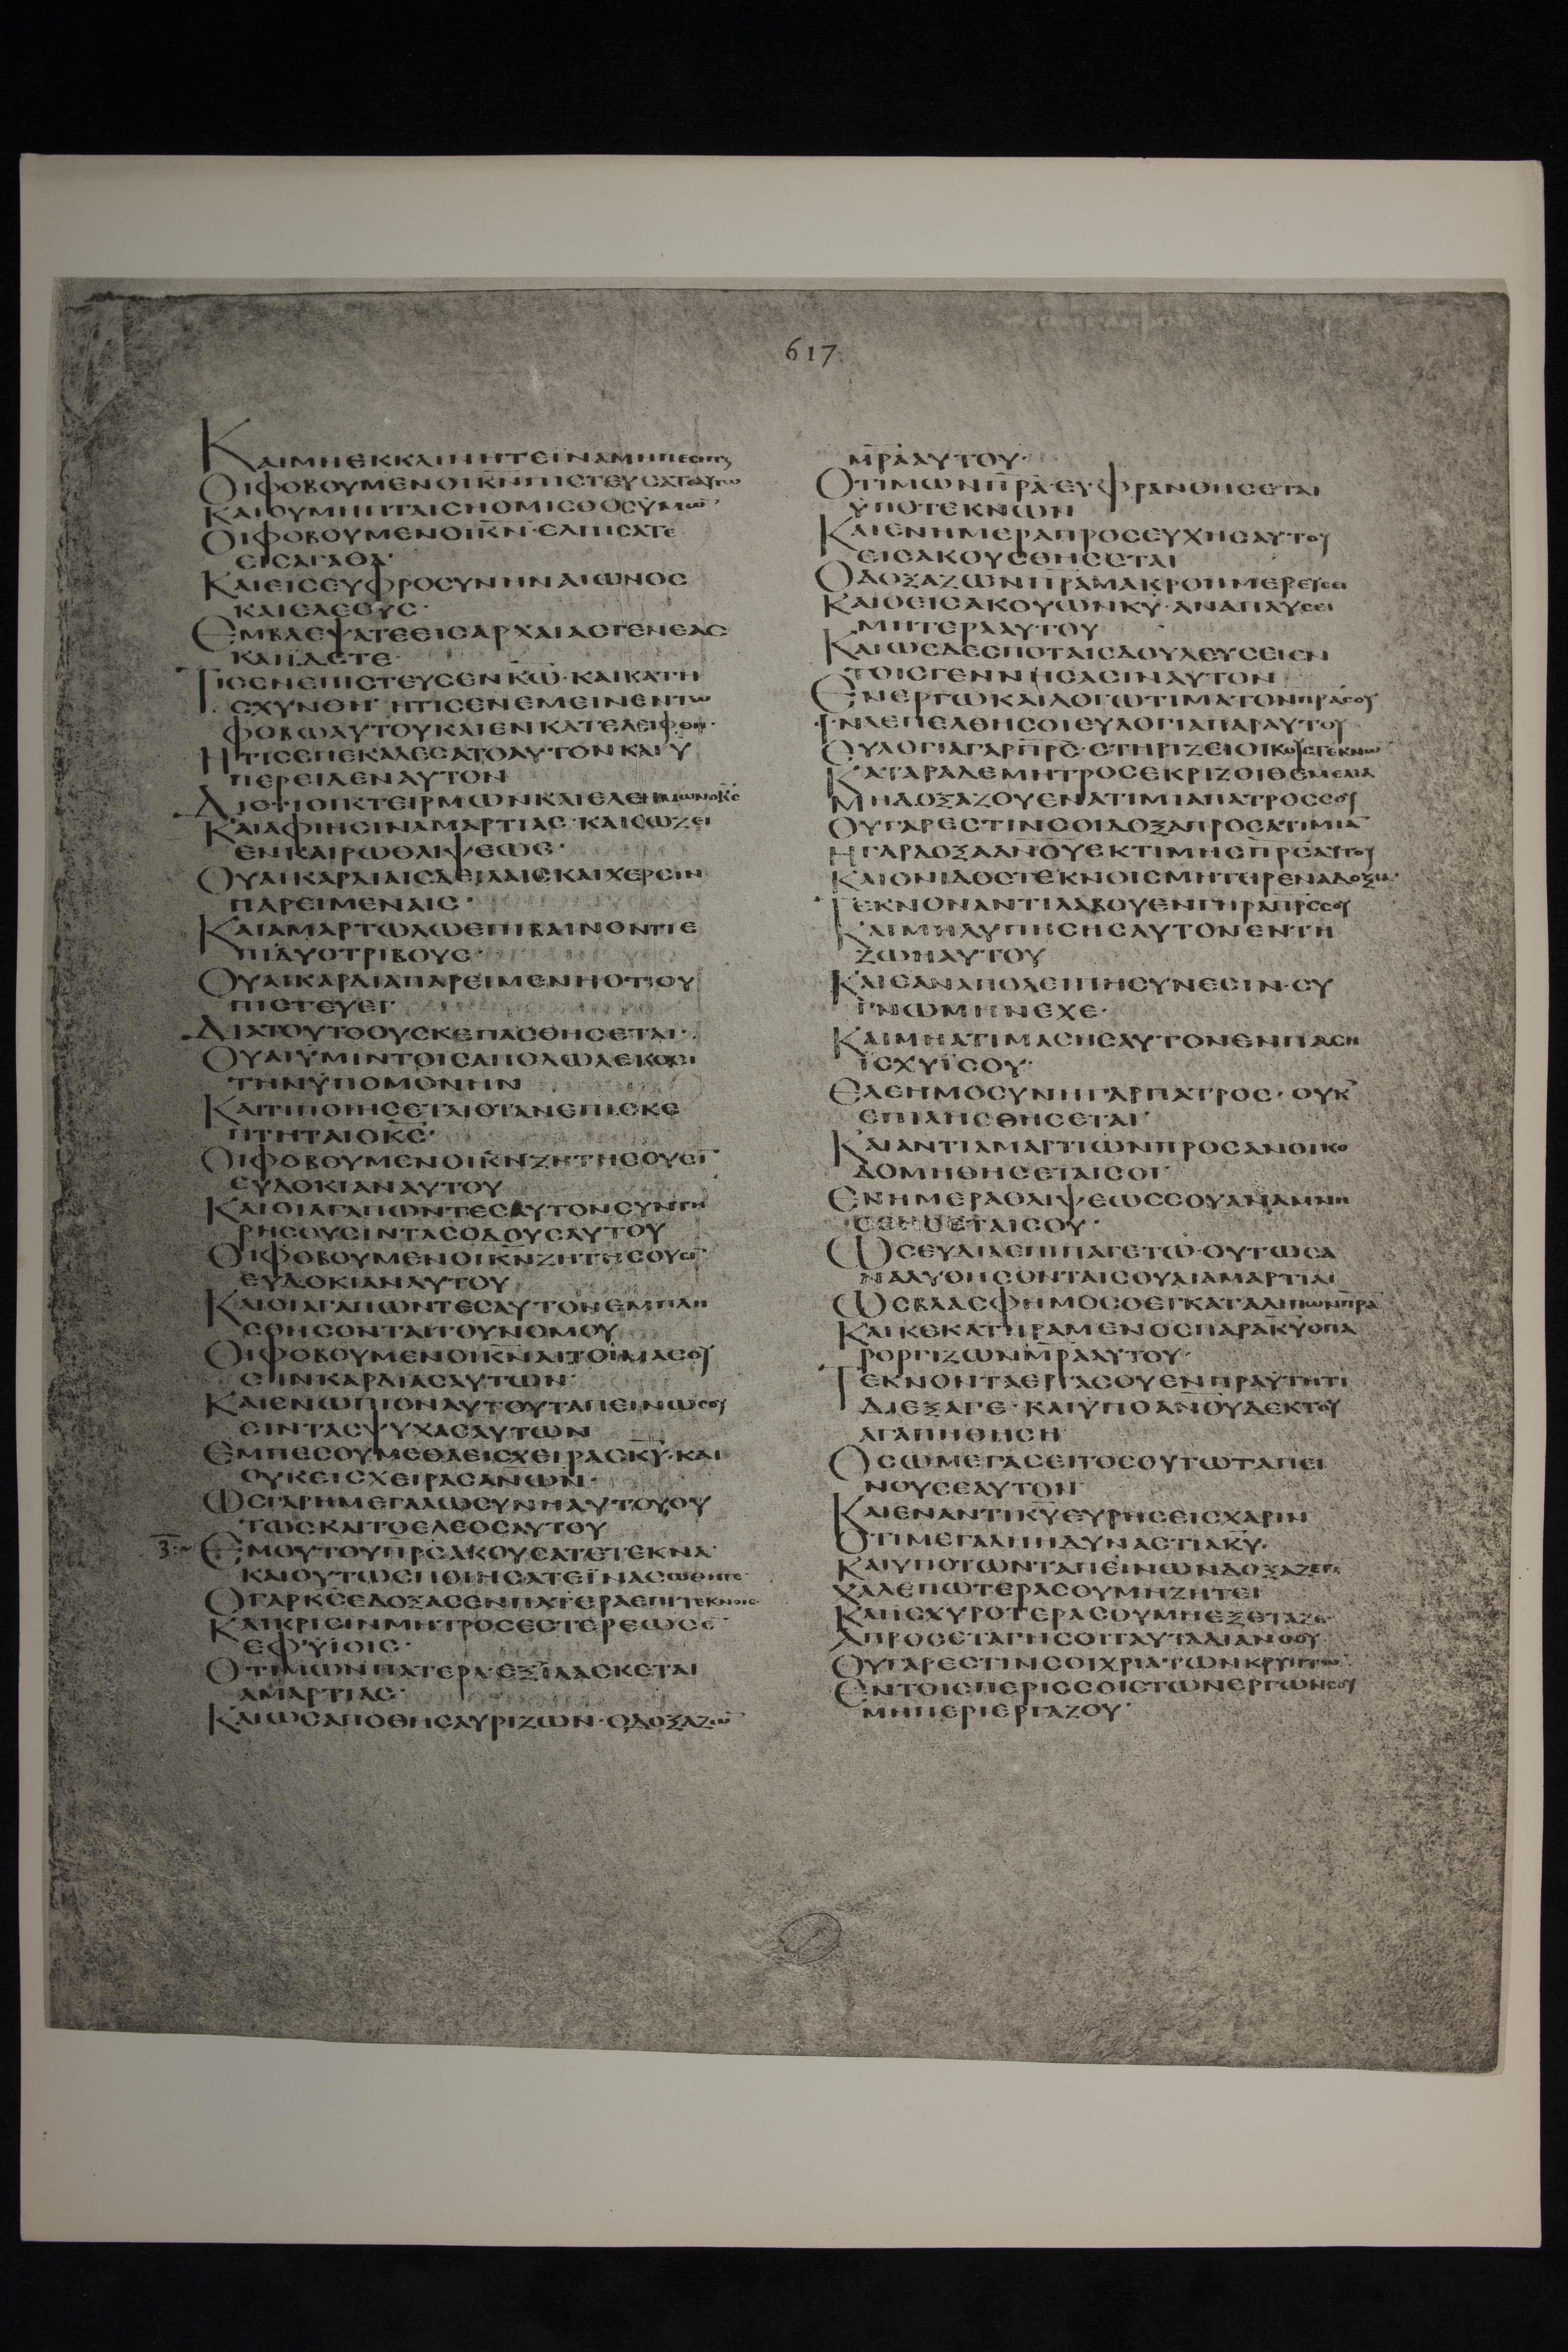 617
ΚΑΙΜΗΕΚΚΛΙΝΗΤΕΪΝΑΜΗΠΕΣΗΤΕ
ΟΙΦΟΒΟΥΜΕΝΟΙΚΝΠΙΣΤΕΥΣΑΤΑΙΑΥΤΩ
ΚΑΙΟΥΜΗΠΤΑΙΣΗΟΜΙΣΘΟΣΫΜΩ̅
ΟΙΦΟΒΟΥΜΕΝΟΙΚ̅Ν̅·ΕΛΠΙΣΑΤΕ
ΕΙΣΑΓΑΘΑ·
ΚΑΙΕΙΣΕΥΦΡΟΣΥΝΗΝΑΙΩΝΟΣ
ΚΑΙΕΛΕΟΥΣ·
ΕΜΒΛΕΨΑΤΕΕΙΣΑΡΧΑΙΑΣΓΕΝΕΑΣ
ΚΑΙΪΔΕΤΕ·
ΤΙΣΕΝΕΠΙΣΤΕΥΣΕΝΚ̅Ω̅·ΚΑΙΚΑΤΗ
ΣΧΥΝΘΗ·ΗΤΙΣΕΝΕΜΕΙΝΕΝΤΩ
ΦΟΒΩΑΥΤΟΥΚΑΙΕΝΚΑΤΕΛΕΙΦΘΗ·
ΗΤΙΣΕΠΕΚΑΛΕΣΑΤΟΑΥΤΟΝΚΑΙΫ
ΠΕΡΕΙΔΕΝΑΥΤΟΝ
ΔΙΟΤΙΟΙΚΤΕΙΡΜΩΝΚΑΙΕΛΕΗΜΩΝΟΚ̅Σ̅
ΚΑΙΑΦΙΗΣΙΝΑΜΑΡΤΙΑΣ·ΚΑΙΣΩΖΕΙ
ΕΝΚΑΙΡΩΘΛΙΨΕΩΣ·
ΟΥΑΙΚΑΡΔΙΑΙΣΔΕΙΛΑΙΣΚΑΙΧΕΡΣΙΝ
ΠΑΡΕΙΜΕΝΑΙΣ·
ΚΑΙΑΜΑΡΤΩΛΩΕΠΙΒΑΙΝΟΝΤΙΕ
ΠΙΔΥΟΤΡΙΒΟΥΣ·
ΟΥΑΙΚΑΡΔΙΑΠΑΡΕΙΜΕΝΗΟΤΙΟΥ
ΠΙΣΤΕΥΕΙ·
ΔΙΑΤΟΥΤΟΟΥΣΚΕΠΑΣΘΗΣΕΤΑΙ·
ΟΥΑΙΫΜΙΝΤΟΙΣΑΠΟΛΩΛΕΚΟΣΙ
ΤΗΝΫΠΟΜΟΝΗΝ
ΚΑΙΤΙΠΟΙΗΣΕΤΑΙΟΤΑΝΕΠΙΣΚΕ
ΠΤΗΤΑΙΟΚ̅Σ̅·
ΟΙΦΟΒΟΥΜΕΝΟΙΚ̅Ν̅ΖΗΤΗΣΟΥΣΙ̅
ΕΥΔΟΚΙΑΝΑΥΤΟΥ
ΚΑΙΟΙΑΓΑΠΩΝΤΕΣΑΥΤΟΝΣΥΝΤΗ
ΡΗΣΟΥΣΙΝΤΑΣΟΔΟΥΣΑΥΤΟΥ
ΟΙΦΟΒΟΥΜΕΝΟΙΚ̅Ν̅ΖΗΤΗΣΟΥΣΙ̅
ΕΥΔΟΚΙΑΝΑΥΤΟΥ
ΚΑΙΟΙΑΓΑΠΩΝΤΕΣΑΥΤΟΝΕΜΠΛΗ
ΣΘΗΣΟΝΤΑΙΤΟΥΝΟΜΟΥ
ΟΙΦΟΒΟΥΜΕΝΟΙΚ̅Ν̅ΑΙΤΟΙΜΑΣΟΥ
ΣΙΝΚΑΡΔΙΑΣΑΥΤΩΝ·
ΚΑΙΕΝΩΠΙΟΝΑΥΤΟΥΤΑΠΕΙΝΩΣΟΥ
ΣΙΝΤΑΣΨΥΧΑΣΑΥΤΩΝ
ΕΜΠΕΣΟΥΜΕΘΑΕΙΣΧΕΙΡΑΣΚ̅Υ̅·ΚΑΙ
ΟΥΚΕΙΣΧΕΙΡΑΣΑΝ̅Ω̅Ν̅·
ΩΣΓΑΡΗΜΕΓΑΛΩΣΥΝΗΑΥΤΟΥΟΥ
ΤΩΣΚΑΙΤΟΕΛΕΟΣΑΥΤΟΥ
ΕΜΟΥΤΟΥΠΡ̅Σ̅ΑΚΟΥΣΑΤΕΤΕΚΝΑ
ΚΑΙΟΥΤΩΣΠΟΙΗΣΑΤΕΪΝΑΣΩΘΗΤΕ·
ΟΓΑΡΚ̅Σ̅ΕΔΟΞΑΣΕΝΠΑΤΕΡΑΕΠΙΤΕΚΝΟΙΣ
ΚΑΙΚΡΙΣΙΝΜΗΤΡΟΣΕΣΤΕΡΕΩΣΕ̅
ΕΦΫΪΟΙΣ·
ΟΤΙΜΩΝΠΑΤΕΡΑ·ΕΞΙΛΑΣΚΕΤΑΙ
ΑΜΑΡΤΙΑΣ·
ΚΑΙΩΣΑΠΟΘΗΣΑΥΡΙΖΩΝ·ΟΔΟΞΑΖΩ̅
Μ̅Ρ̅Α̅ΑΥΤΟΥ·
ΟΤΙΜΩΝΠ̅Ρ̅Α̅·ΕΥΦΡΑΝΘΗΣΕΤΑΙ
ΫΠΟΤΕΚΝΩΝ
ΚΑΙΕΝΗΜΕΡΑΠΡΟΣΕΥΧΗΣΑΥΤΟΥ
ΕΙΣΑΚΟΥΣΘΗΣΕΤΑΙ
ΟΔΟΞΑΖΩΝΠ̅Ρ̅Α̅ΜΑΚΡΟΗΜΕΡΕΥΣΕΙ
ΚΑΙΟΕΙΣΑΚΟΥΩΝΚ̅Υ̅·ΑΝΑΠΑΥΣΕΙ
ΜΗΤΕΡΑΑΥΤΟΥ
ΚΑΙΩΣΔΕΣΠΟΤΑΙΣΔΟΥΛΕΥΣΕΙΕΝ
ΤΟΙΣΓΕΝΝΗΣΑΣΙΝΑΥΤΟΝ
ΕΝΕΡΓΩΚΑΙΛΟΓΩΤΙΜΑΤΟΝΠ̅Ρ̅Α̅ΣΟΥ
ΪΝΑΕΠΕΛΘΗΣΟΙΕΥΛΟΓΙΑΠΑΡΑΥΤΟΥ
ΕΥΛΟΓΙΑΓΑΡΠ̅Ρ̅Σ̅·ΣΤΗΡΙΖΕΙΟΙΚΟΥΣΤΕΚΝΩ̅
ΚΑΤΑΡΑΔΕΜΗΤΡΟΣΕΚΡΙΖΟΙΘΕΜΕΛΙΑ
ΜΗΔΟΞΑΖΟΥΕΝΑΤΙΜΙΑΠΑΤΡΟΣΣΟΥ
ΟΥΓΑΡΕΣΤΙΝΣΟΙΔΟΞΑΠΡΟΣΑΤΙΜΙΑ̅
ΗΓΑΡΔΟΞΑΑΝ̅Ο̅Υ̅ΕΚΤΙΜΗΣΠ̅Ρ̅Σ̅ΑΥΤΟΥ
ΚΑΙΟΝΙΔΟΣΤΕΚΝΟΙΣΜΗΤΗΡΕΝΑΔΟΞΙΑ·
ΤΕΚΝΟΝΑΝΤΙΛΑΒΟΥΕΝΓΗΡΑΠ̅Ρ̅Σ̅ΣΟΥ
ΚΑΙΜΗΛΥΠΗΣΗΣΑΥΤΟΝΕΝΤΗ
ΖΩΗΑΥΤΟΥ
ΚΑΙΕΑΝΑΠΟΛΕΙΠΗΣΥΝΕΣΙΝ·ΣΥ
ΓΝΩΜΗΝΕΧΕ·
ΚΑΙΜΗΑΤΙΜΑΣΗΣΑΥΤΟΝΕΝΠΑΣΗ
ΪΣΧΥΪΣΟΥ·
ΕΛΕΗΜΟΣΥΝΗΓΑΡΠΑΤΡΟΣ·ΟΥΚ
ΕΠΙΛΗΣΘΗΣΕΤΑΙ·
ΚΑΙΑΝΤΙΑΜΑΡΤΙΩΝΠΡΟΣΑΝΟΙΚΟ
ΔΟΜΗΘΗΣΕΤΑΙΣΟΙ·
ΕΝΗΜΕΡΑΘΛΙΨΕΩΣΣΟΥΑΝΑΜΝΗ
ΣΘΗΣΕΤΑΙΣΟΥ·
ΩΣΕΥΔΙΑΕΠΙΠΑΓΕΤΩ·ΟΥΤΩΣΑ
ΝΑΛΥΘΗΣΟΝΤΑΙΣΟΥΑΙΑΜΑΡΤΙΑΙ
ΩΣΒΛΑΣΦΗΜΟΣΟΕΓΚΑΤΑΛΙΠΩΝΠ̅Ρ̅Α̅
ΚΑΙΚΕΚΑΤΗΡΑΜΕΝΟΣΠΑΡΑΚ̅Υ̅ΟΠΑ
ΡΟΡΓΙΖΩΝΜ̅Ρ̅Α̅ΑΥΤΟΥ·
ΤΕΚΝΟΝΤΑΕΡΓΑΣΟΥΕΝΠΡΑΫΤΗΤΙ
ΔΙΕΞΑΓΕ·ΚΑΙΫΠΟΑΝ̅Ο̅Υ̅ΔΕΚΤΟΥ
ΑΓΑΠΗΘΗΣΗ
ΟΣΩΜΕΓΑΣΕΙΤΟΣΟΥΤΩΤΑΠΕΙ
ΝΟΥΣΕΑΥΤΟΝ
ΚΑΙΕΝΑΝΤΙΚ̅Υ̅ΕΥΡΗΣΕΙΣΧΑΡΙΝ
ΟΤΙΜΕΓΑΛΗΗΔΥΝΑΣΤΙΑΚ̅Υ̅·
ΚΑΙΥΠΟΤΩΝΤΑΠΕΙΝΩΝΔΟΞΑΖΕΤΑΙ
ΧΑΛΕΠΩΤΕΡΑΣΟΥΜΗΖΗΤΕΙ
ΚΑΙΙΣΧΥΡΟΤΕΡΑΣΟΥΜΗΕΞΕΤΑΖΕ·
ΑΠΡΟΣΕΤΑΓΗΣΟΙΤΑΥΤΑΔΙΑΝΟΟΥ
ΟΥΓΑΡΕΣΤΙΝΣΟΙΧΡΙΑΤΩΝΚΡΥΠΤΩ̅
ΕΝΤΟΙΣΠΕΡΙΣΣΟΙΣΤΩΝΕΡΓΩΝΣΟΥ
ΜΗΠΕΡΙΕΡΓΑΖΟΥ·